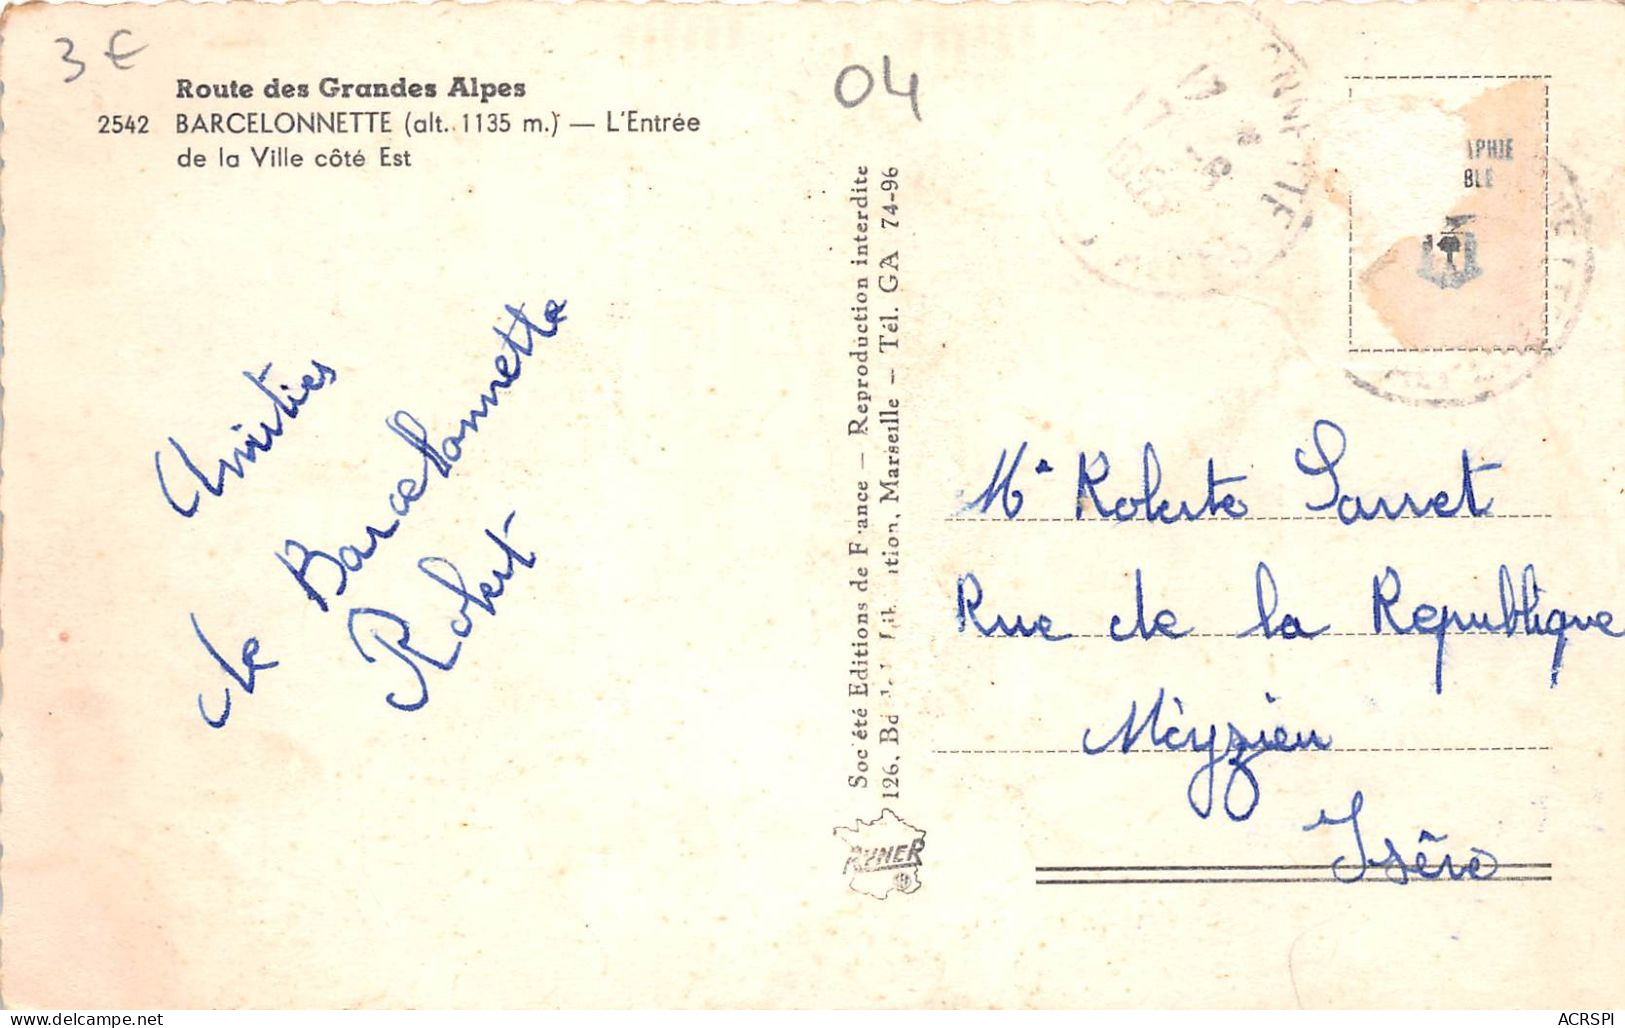 3 €
04
Route des Grandes Alpes
2542 BARCELONNETTE (alt. 1135 m.) — L'Entrée
de la Ville côté Est
Amitiés
de Barcelonnette
Robert
Société Editions de France — Reproduction interdite
126, Bd de la Libération, Marseille — Tél. GA 74-96
RYNER
APHIE
BLE
Me Roberte Sarret
Rue de la Republique
Meyzieu
Isère
ACRSPI
www.delcampe.net